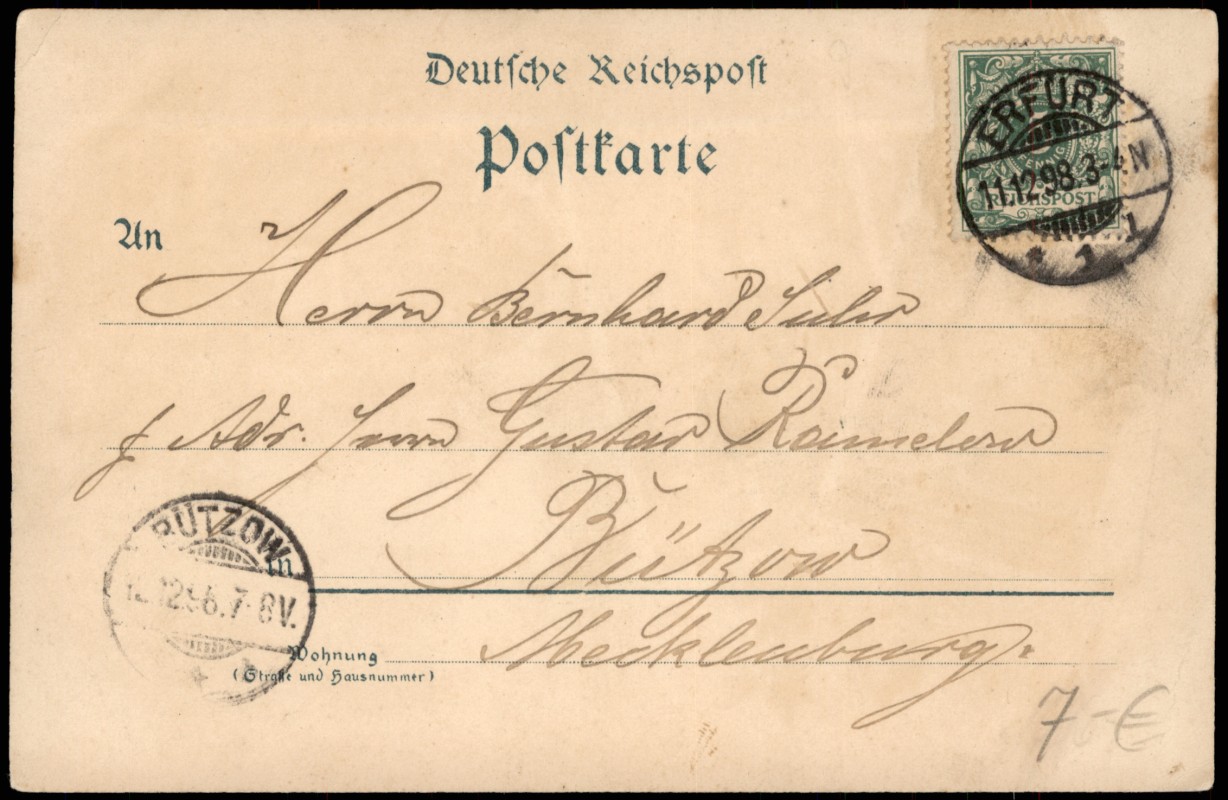 Deutsche Reichspost
Postkarte
ERFURT
11.12.98.3-4N
REICHSPOST
1
An
Herrn Bernhard Suhr
p Adr. Herrn Gustav Ramelow
Bützow
in
BÜTZOW
12.12.98.7-8V.
Mecklenburg.
Wohnung
(Straße und Hausnummer)
7-€